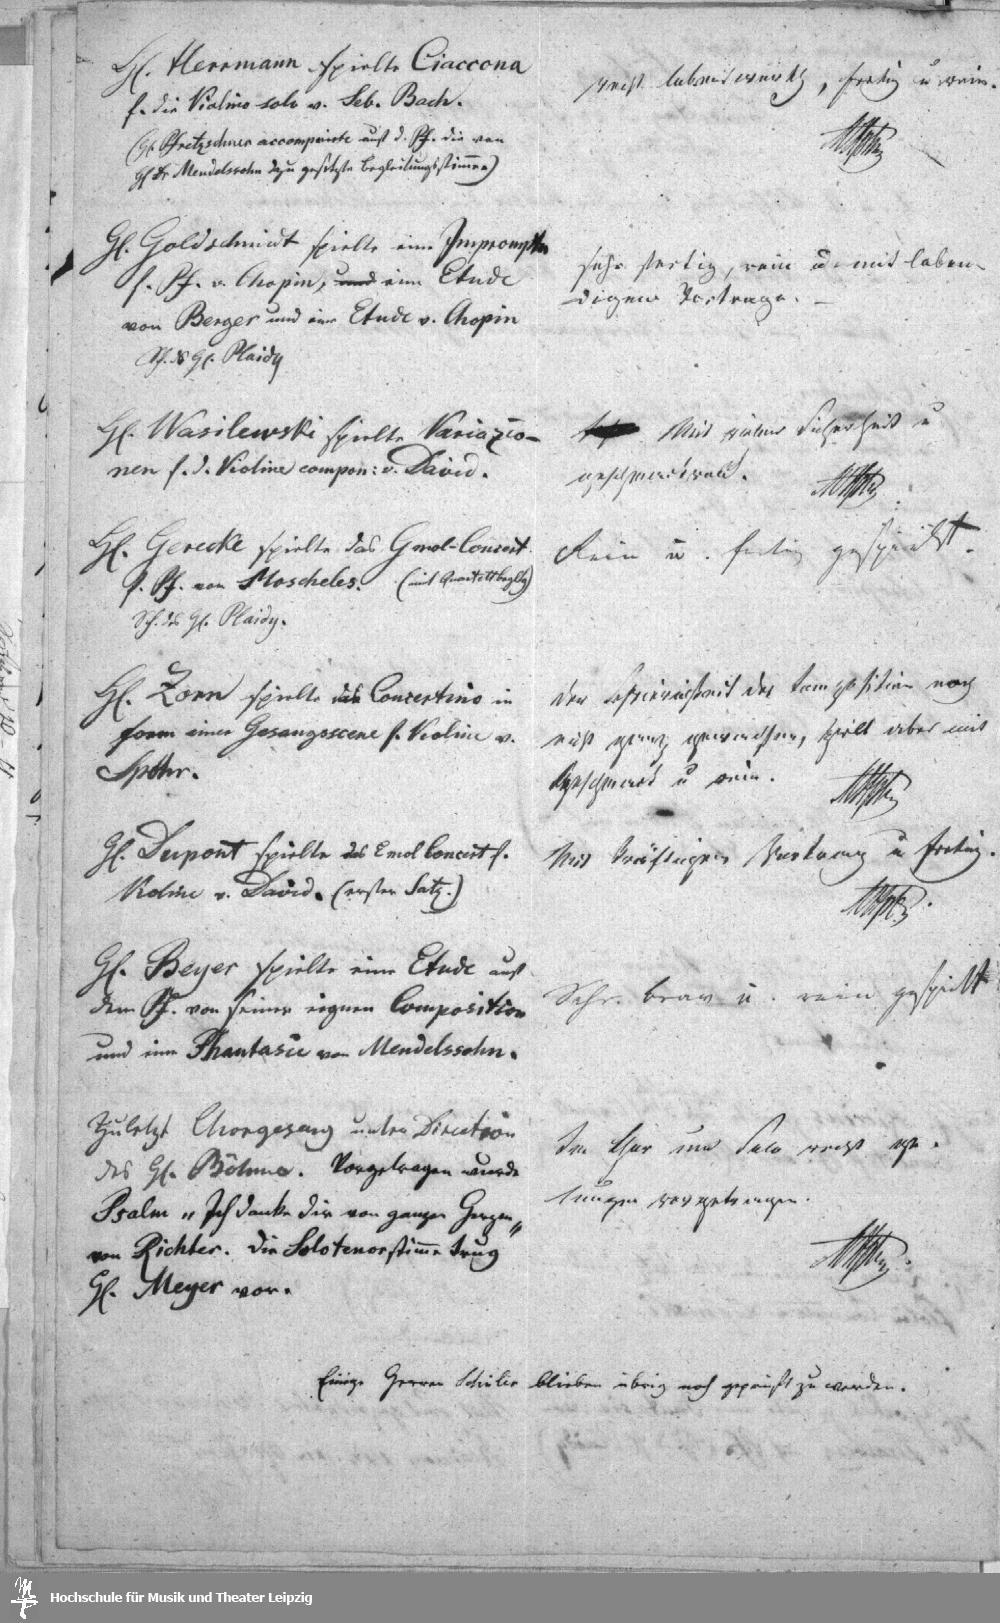 H. Herrmann spielte Ciaccona
f. die Violino solo v. Seb. Bach.
(H. Pfretzschner accompnirte auf d. Pf. die von
H. Dr. Mendelssohn dazu gesetzte Begleitungsstimmen)
recht lobenswerth, fertig u rein.
H. Goldschmidt spielte ein Impromptu
f. Pf. v. Chopin, und eine Etude
von Berger und eine Etude v. Chopin
Sch. des H. Plaidy
sehr fertig, rein u. mit leben-
digem Vortrage. –
H. Wasilewski spielte Variazio-
nen f. d. Violine compon: v. David.
Mit Sicherheit u
geschmackvoll.
H. Gerecke spielte das Gmol-Concert
f. Pf. von Moscheles. (mit Quartettbegltg)
Sch. des H. Plaidy.
Rein u. fertig gespielt.
H. Zorn spielte das Concertino in
form einer Gesangsscene f. Violine v.
Spohr.
Der Schwierigkeit der Composition noch
nicht ganz gewachsen, spielt aber mit
Geschmack u rein.
H. Dupont spielte das Emol Concert f.
Violine v. David. (erster Satz.)
Mit kräftigem Vortrag u fertig.
H. Beyer spielte eine Etude auf
dem Pf. von seiner eignen Composition
und eine Phantasie von Mendelssohn.
Sehr brav u. rein gespielt
Zuletzt Chorgesang unter Direction
des H. Böhme. Vorgetragen wurde
Psalm „Ich danke dir von ganzen Herzen"
von Richter. Die Solotenorstimme trug
H. Meyer vor.
Im Chor und Solo recht ge-
lungen vorgetragen.
Einige Herren Schüler blieben übrig noch geprüft zu werden.
Hochschule für Musik und Theater Leipzig